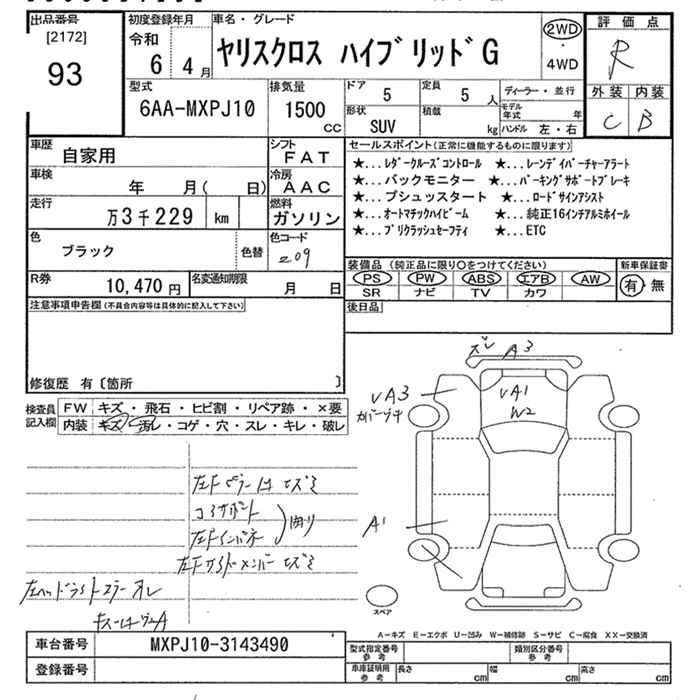 出品番号 初度登録年月 車名・グレード 評価点
[2172] 令和 2WD
93 6 年 4 月 ヤリスクロス ハイブリッドG ・ R
4WD
外装 内装
型式 排気量 ドア 5 定員 5 人 ディーラー・並行 C B
6AA-MXPJ10 1500 CC 形状 SUV 積載 kg モデル年式 年
ハンドル 左・右
車歴 自家用 シフト FAT セールスポイント(正常に機能するものに限ります)
車検 年 月( 日) 冷房 AAC ★...レダークルーズコントロール ★...レーンディパーチャーアラート
★...バックモニター ★...パーキングサポートブレーキ
走行 万3千229 km 燃料 ガソリン ★...プュッスタート ★...ロードサインアシスト
★...オートマチックハイビーム ★...純正16インチアルミホイール
色 ブラック 色替 色コード 209 ★...プリクラッシュセーフティ ★...ETC
装備品 (純正品に限り○をつけてください) 新車保証書
R券 10,470 円 名変通知期限 月 日 PS PW ABS エアB AW 有・無
SR ナビ TV カワ
注意事項申告欄(不具合内容等は具体的に記入して下さい) 後日品
修復歴 有〔箇所 〕
検査員記入欄 FW キズ・飛石・ヒビ割・リペア跡・×要
内装 キズ・汚レ・コゲ・穴・スレ・キレ・破レ
ズレ A3
UA3
UA1
W2
A1
左Fピラー
コアサポート
左Fインパネ
左Fサイドメンバー
スペア
A-キズ E-エクボ U-凹み W-補修跡 S-サビ C-腐食 XX-交換済
車台番号 MXPJ10-3143490 型式指定番号 参考 類別区分番号 参考
登録番号 車庫証明用 参考 長さ cm 幅 cm 高さ cm